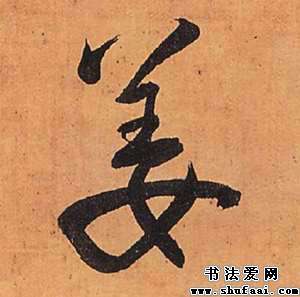 姜
书法爱网
www.shufaai.com